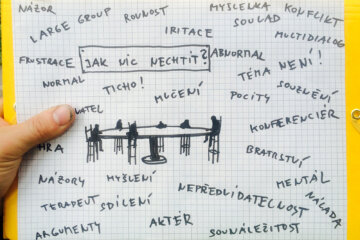 NÁZOR
LARGE GROUP
ROVNOST
MYŠLENKA
KONFLIKT
IRITACE
SOULAD
MULTIDIALOG
FRUSTRACE
JAK NIC NECHTÍT?
ABNORMAL
TÉMA NENÍ!
NORMAL
TICHO!
MLČENÍ
POCITY
SOUZNĚNÍ
KONFERENCIÉR
HRA
BRATRSTVÍ
NÁZORY
MYŠLENÍ
MENTÁL
TERAPEUT
SDÍLENÍ
NEPŘEDVÍDATELNOST
NÁLADA
ARGUMENTY
AKTÉR
SOUNÁLEŽITOST